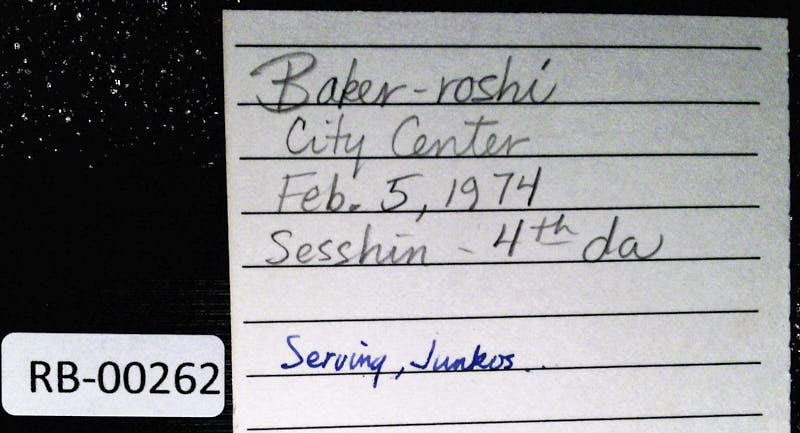 Baker-roshi
City Center
Feb. 5, 1974
Sesshin - 4th da
Serving, Junkos..
RB-00262